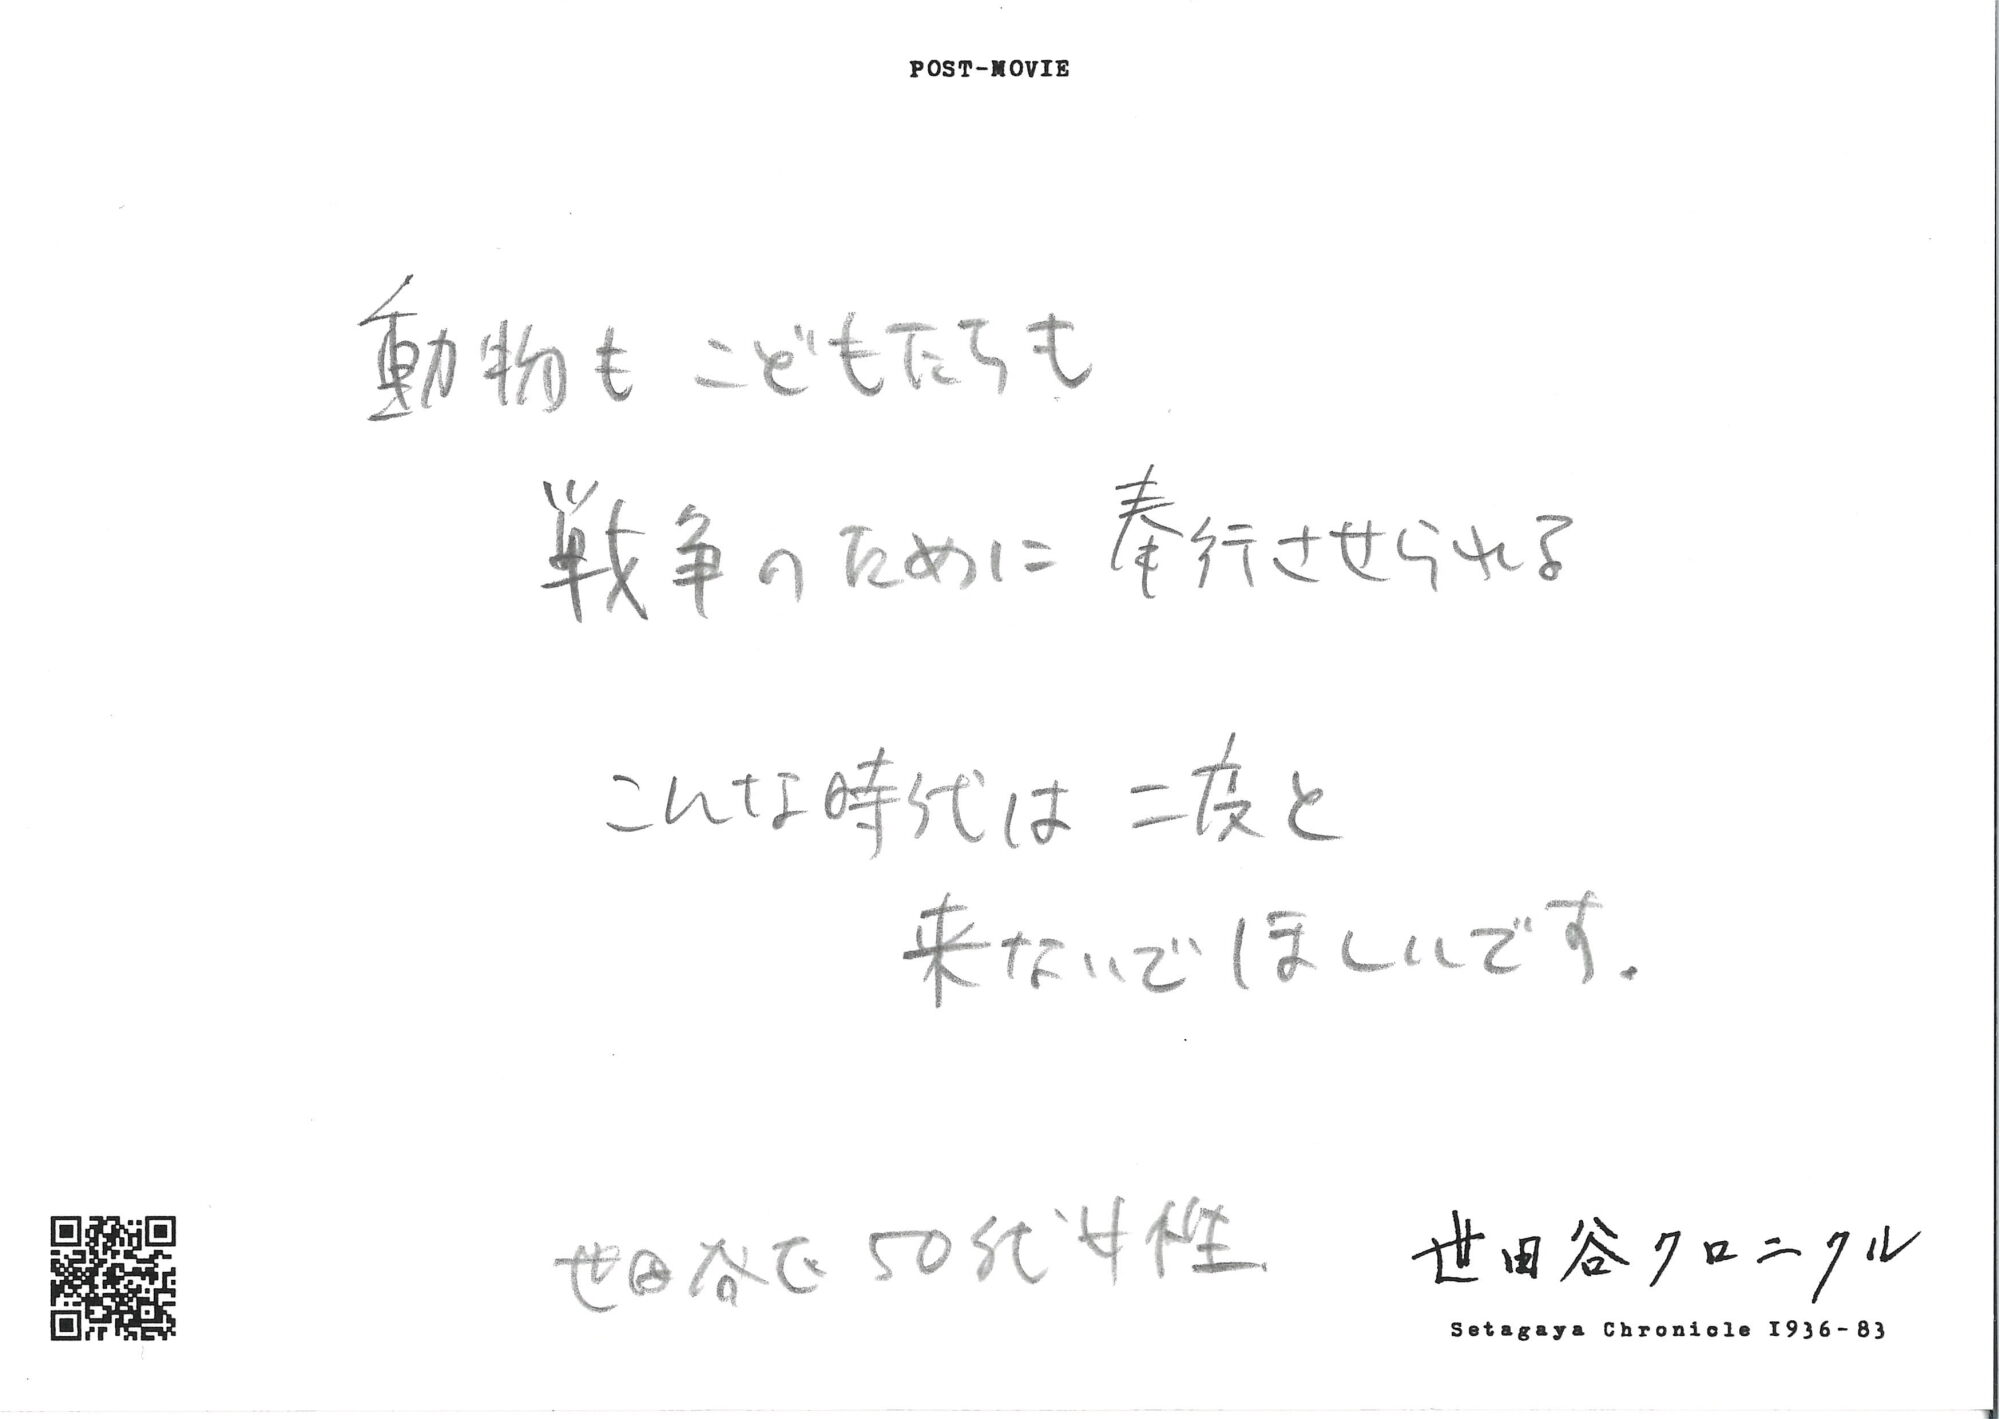 POST-MOVIE
動物も こどもたちも
戦争のために 奉行させられる
こんな時代は 二度と
来ないでほしいです.
世田谷で 50代 女性.
世田谷クロニクル
Setagaya Chronicle 1936-83